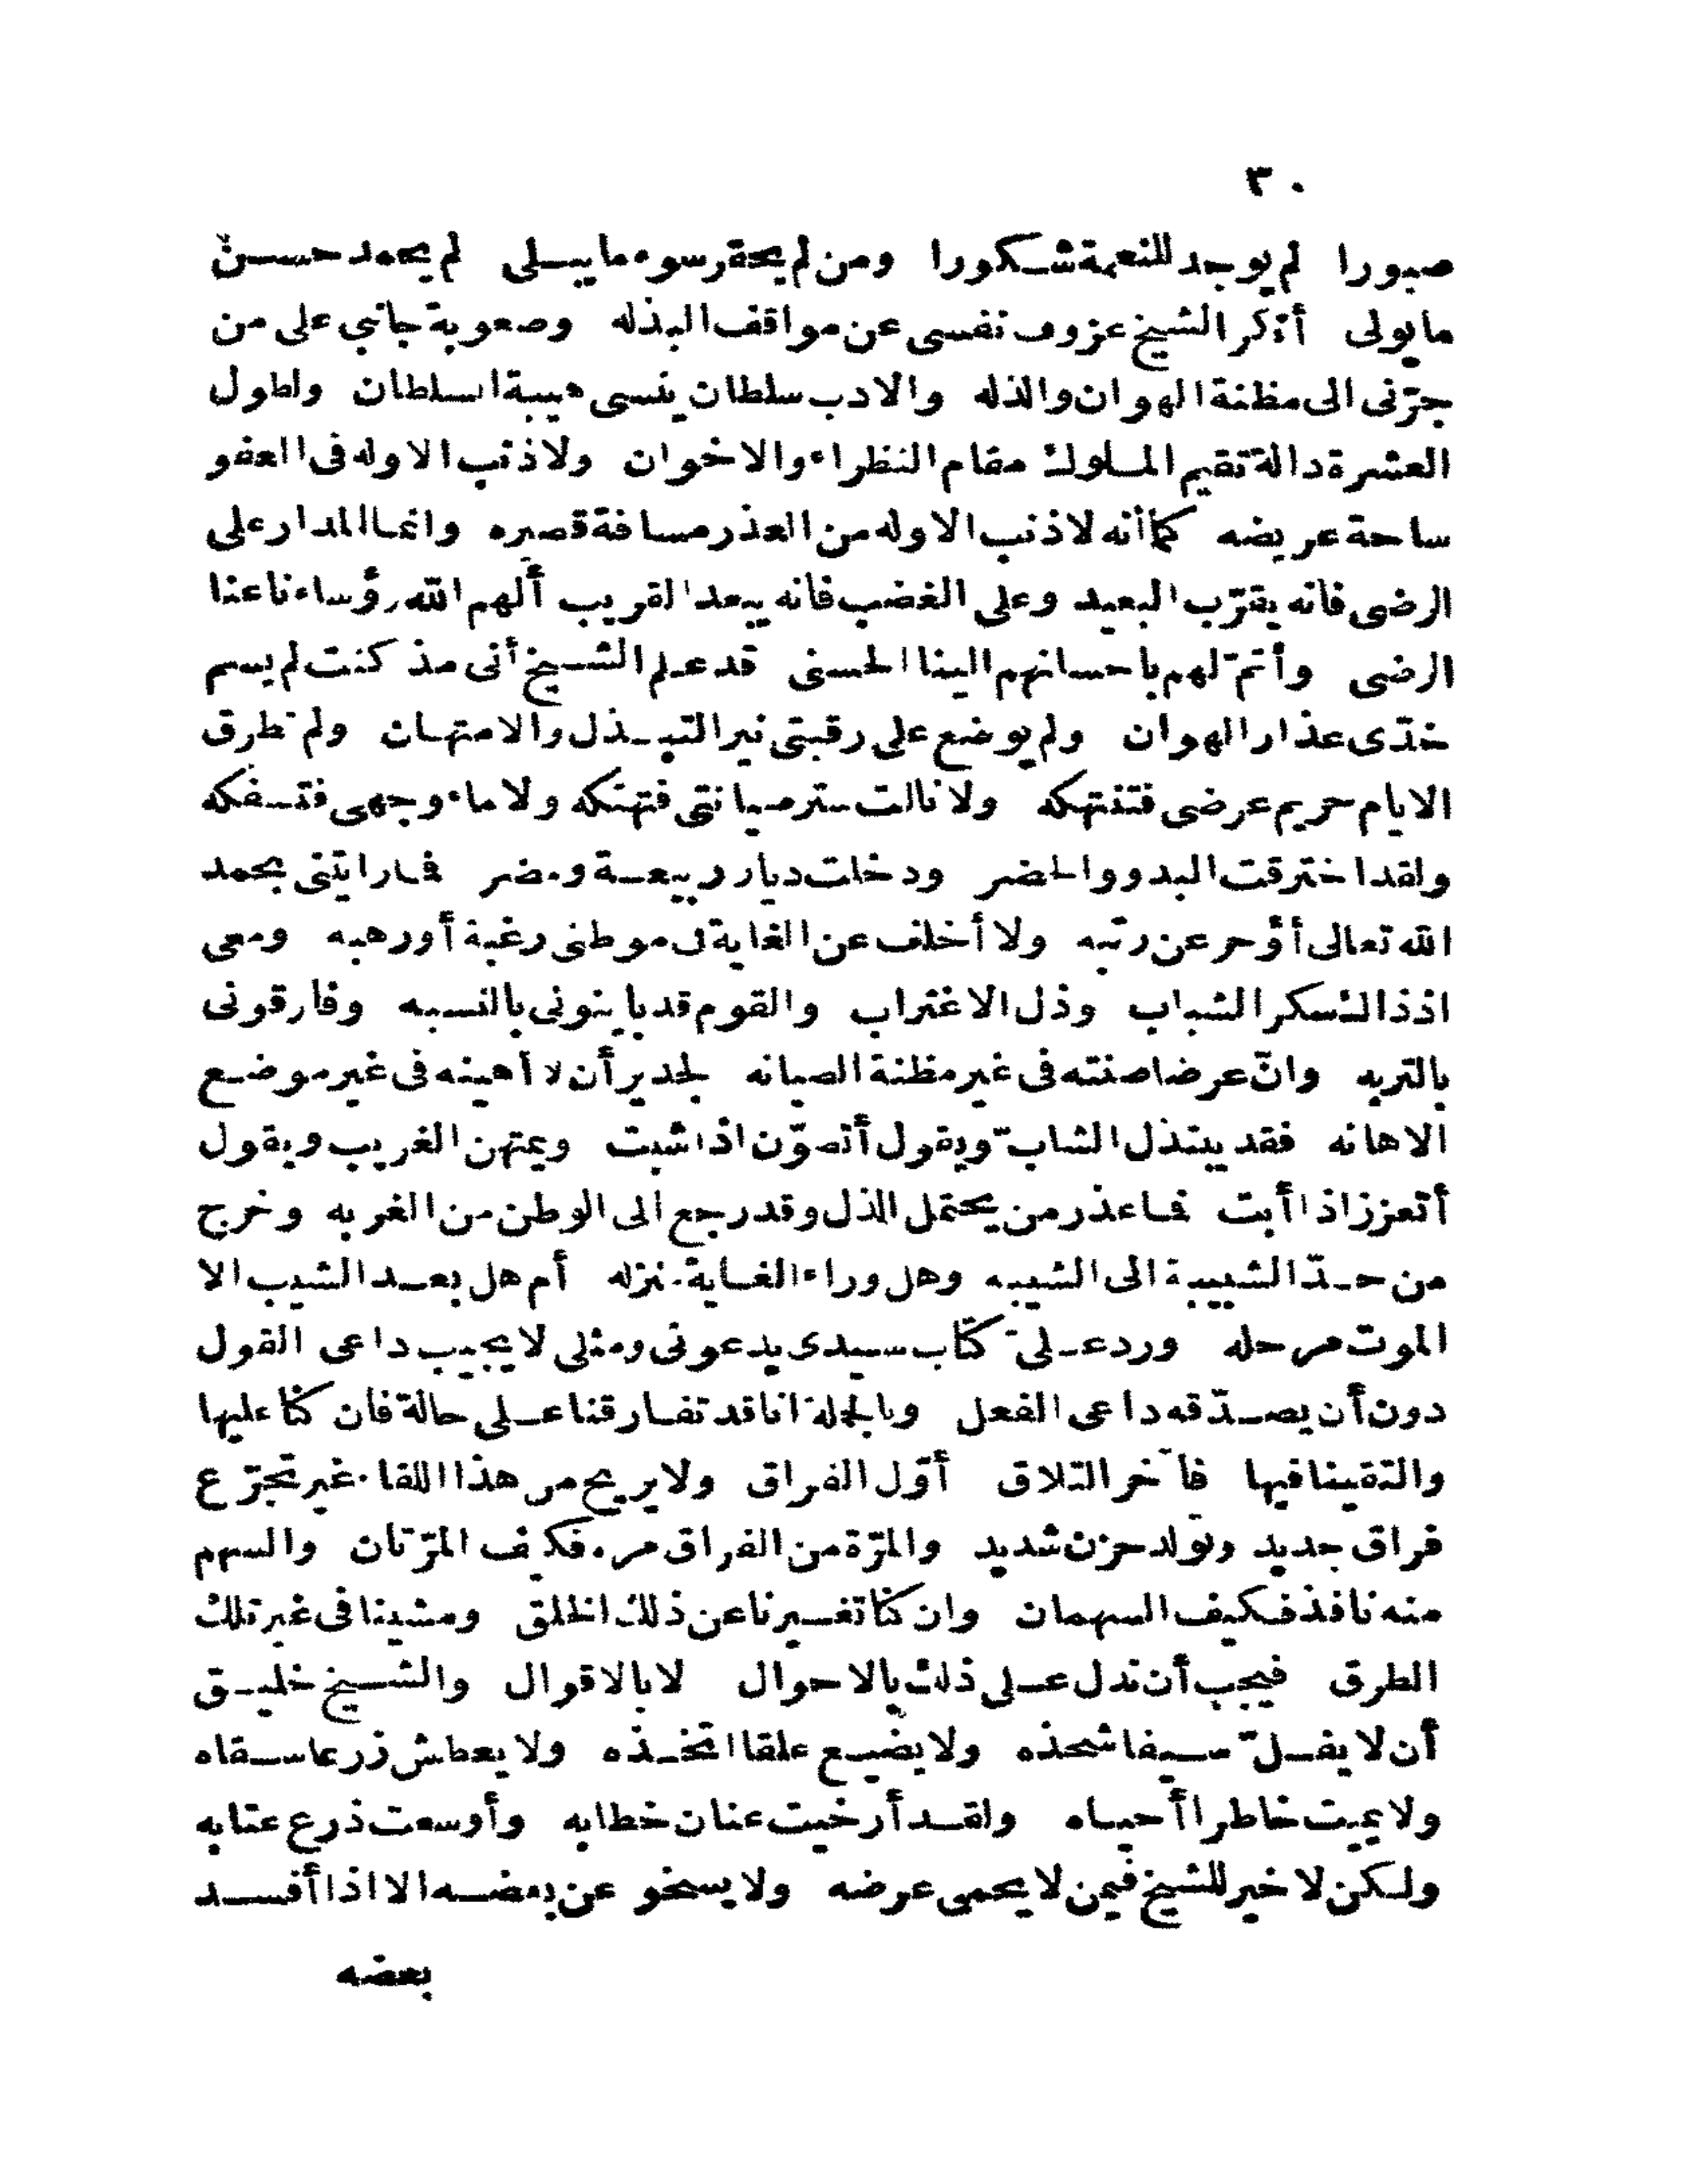 ٣٠
صبورا لم يوجد للنعمة شكورا ومن لم يحقر سوء ما يبلى لم يحمد حسن
ما يولى أذكر الشيخ عزوف نفسى عن مواقف البذله وصعوبة جانبى على من
جرّنى الى مظنة الهوان والذله والادب سلطان ينسى هيبة السلطان ولطول
العشرة دالة تقيم الملوك مقام النظراء والاخوان ولا ذنب الا وله فى العفو
ساحة عريضه كما أنه لا ذنب الا وله من العذر مسافة قصيره وانما المدار على
الرضى فانه يقرّب البعيد وعلى الغضب فانه يبعد القريب ألهم الله رؤساءنا عنا
الرضى وأتمّ لهم باحسانهم الينا الحسنى قد علم الشيخ أنى مذ كنت لم يسم
خدّى عذار الهوان ولم يوضع على رقبتى نير التبذل والامتهان ولم تطرق
الايام حريم عرضى فتنتهكه ولا نالت ستر صيانتى فتهتكه ولا ماء وجهى فتسفكه
ولقد اخترقت البدو والحضر ودخلت ديار ربيعة ومضر فما رايتنى بحمد
الله تعالى أؤخر عن رتبه ولا أخلف عن الغاية فى موطنى رغبة أو رهبه ومعى
اذ ذاك سكر الشباب وذل الاغتراب والقوم قد باينونى بالنسبه وفارقونى
بالتربه وانّ عرضا صنته فى غير مظنة الصيانه لجدير أن لا أهينه فى غير موضع
الاهانه فقد يبتذل الشابّ ويقول أتصوّن اذا شبت ويمتهن الغريب ويقول
أتعزز اذا أبت فما عذر من يحتمل الذل وقد رجع الى الوطن من الغربه وخرج
من حدّ الشبيبة الى الشيبه وهل وراء الغاية منزله أم هل بعد الشيب الا
الموت مرحله ورد علىّ كتاب سيدى يدعونى ومثلى لا يجيب داعى القول
دون أن يصدّقه داعى الفعل وبالجملة انا قد تفارقنا على حالة فان كنا عليها
والتقينا فيها فآخر التلاق أوّل الفراق ولا يريح من هذا اللقاء غير تجرّع
فراق جديد وتولد حزن شديد والمرّة من الفراق مره فكيف المرّتان والسهم
منه نافذ فكيف السهمان وان كنا تغيرنا عن ذلك الخلق ومشينا فى غير تلك
الطرق فيجب أن تدل على ذلك بالاحوال لا بالاقوال والشيخ خليق
أن لا يفلّ سيفا شحذه ولا يضيع علقا اتخذه ولا يعطش زرعا سقاه
ولا يميت خاطرا أحياه ولقد أرخيت عنان خطابه وأوسعت ذرع عتابه
ولكن لا خير للشيخ فيمن لا يحمى عرضه ولا يسخو عن بعضه الا اذا أفسد
بعضه